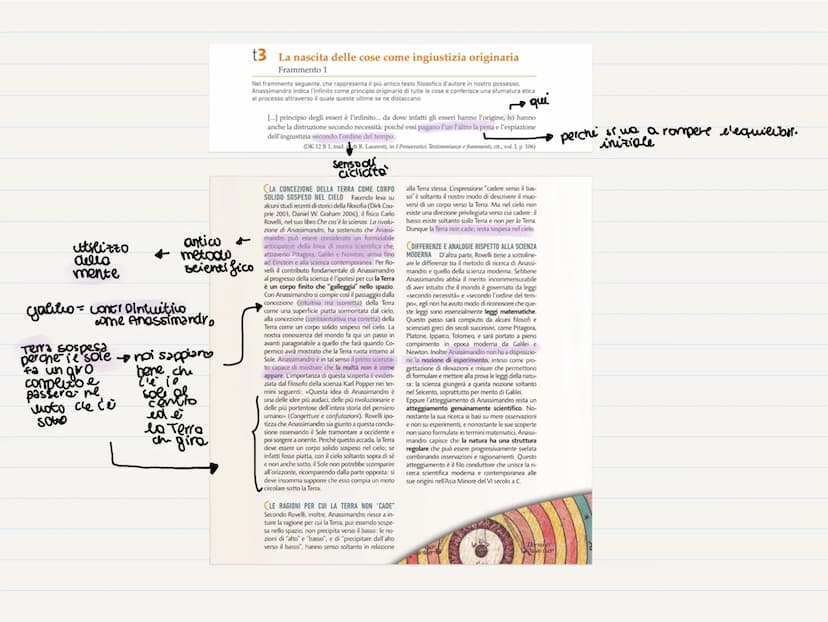 t3 La nascita delle cose come ingiustizia originaria
Frammento 1
Nel frammento seguente, che rappresenta il più antico testo filosofico d'autore in nostro possesso,
Anassimandro indica l'infinito come principio originario di tutte le cose e conferisce una sfumatura etica
al processo attraverso il quale queste ultime se ne distaccano.
[...] principio degli esseri è l'infinito... da dove infatti gli esseri hanno l'origine, ivi hanno
anche la distruzione secondo necessità: poiché essi pagano l'un l'altro la pena e l'espiazione
dell'ingiustizia secondo l'ordine del tempo.
(DK 12 B 1, trad. di R. Laurenti, in I Presocratici. Testimonianze e frammenti, cit., vol. I, p. 106)
qui
perché si va a rompere l'equilibrio
iniziale
senso di
ciclicità
LA CONCEZIONE DELLA TERRA COME CORPO
SOLIDO SOSPESO NEL CIELO Facendo leva su
alcuni studi recenti di storici della filosofia (Dirk Cou-
prie 2003, Daniel W. Graham 2006), il fisico Carlo
Rovelli, nel suo libro Che cos'è la scienza. La rivolu-
zione di Anassimandro, ha sostenuto che Anassi-
mandro può essere considerato un formidabile
anticipatore della linea di ricerca scientifica che,
attraverso Pitagora, Galilei e Newton, arriva fino
ad Einstein e alla scienza contemporanea. Per Ro-
velli il contributo fondamentale di Anassimandro
al progresso della scienza è l'ipotesi per cui la Terra
è un corpo finito che "galleggia" nello spazio.
Con Anassimandro si compie così il passaggio dalla
concezione (intuitiva ma scorretta) della Terra
come una superficie piatta sormontata dal cielo,
alla concezione (controintuitiva ma corretta) della
Terra come un corpo solido sospeso nel cielo. La
nostra conoscenza del mondo fa qui un passo in
avanti paragonabile a quello che farà quando Co-
pernico avrà mostrato che la Terra ruota intorno al
Sole. Anassimandro è in tal senso il primo scienzia-
to capace di mostrare che la realtà non è come
appare. L'importanza di questa scoperta è eviden-
ziata dal filosofo della scienza Karl Popper nei ter-
mini seguenti: «Questa idea di Anassimandro è
una delle idee più audaci, delle più rivoluzionarie e
delle più portentose dell'intera storia del pensiero
umano» (Congetture e confutazioni). Rovelli ipo-
tizza che Anassimandro sia giunto a questa conclu-
sione osservando il Sole tramontare a occidente e
poi sorgere a oriente. Perché questo accada, la Terra
deve essere un corpo solido sospeso nel cielo; se
infatti fosse piatta, con il cielo soltanto sopra di sé
e non anche sotto, il Sole non potrebbe scomparire
all'orizzonte, ricomparendo dalla parte opposta: si
deve insomma supporre che esso compia un moto
circolare sotto la Terra.
LE RAGIONI PER CUI LA TERRA NON "CADE"
Secondo Rovelli, inoltre, Anassimandro riesce a in-
tuire la ragione per cui la Terra, pur essendo sospe-
sa nello spazio, non precipita verso il basso: le no-
zioni di "alto" e "basso", e di "precipitare dall'alto
verso il basso", hanno senso soltanto in relazione
alla Terra stessa. L'espressione "cadere verso il bas-
so" è soltanto il nostro modo di descrivere il muo-
versi di un corpo verso la Terra. Ma nel cielo non
esiste una direzione privilegiata verso cui cadere: il
basso esiste soltanto sulla Terra e non per la Terra.
Dunque la Terra non cade: resta sospesa nel cielo.
DIFFERENZE E ANALOGIE RISPETTO ALLA SCIENZA
MODERNA D'altra parte, Rovelli tiene a sottoline-
are le differenze tra il metodo di ricerca di Anassi-
mandro e quello della scienza moderna. Sebbene
Anassimandro abbia il merito incommensurabile
di aver intuito che il mondo è governato da leggi
«secondo necessità» e «secondo l'ordine del tem-
po», egli non ha avuto modo di riconoscere che que-
ste leggi sono essenzialmente leggi matematiche.
Questo passo sarà compiuto da alcuni filosofi e
scienziati greci dei secoli successivi, come Pitagora,
Platone, Ipparco, Tolomeo, e sarà portato a pieno
compimento in epoca moderna da Galilei e
Newton. Inoltre Anassimandro non ha a disposizio-
ne la nozione di esperimento, inteso come pro-
gettazione di rilevazioni e misure che permettono
di formulare e mettere alla prova le leggi della natu-
ra: la scienza giungerà a questa nozione soltanto
nel Seicento, soprattutto per merito di Galilei.
Eppure l'atteggiamento di Anassimandro resta un
atteggiamento genuinamente scientifico. No-
nostante la sua ricerca si basi su mere osservazioni
e non su esperimenti, e nonostante le sue scoperte
non siano formulate in termini matematici, Anassi-
mandro capisce che la natura ha una struttura
regolare che può essere progressivamente svelata
combinando osservazioni e ragionamenti. Questo
atteggiamento è il filo conduttore che unisce la ri-
cerca scientifica moderna e contemporanea alle
sue origini nell'Asia Minore del VI secolo a.C.
antico
metodo
scientifico
utilizzo
della
mente
Galileo = controintuitivo
come Anassimandro
Terra sospesa
perché il sole
fa un giro
completo e
passera nel
vuoto che c'è
sotto
noi sappiamo
bene che
c'è il
sole al
centro
ed è
la Terra
che gira